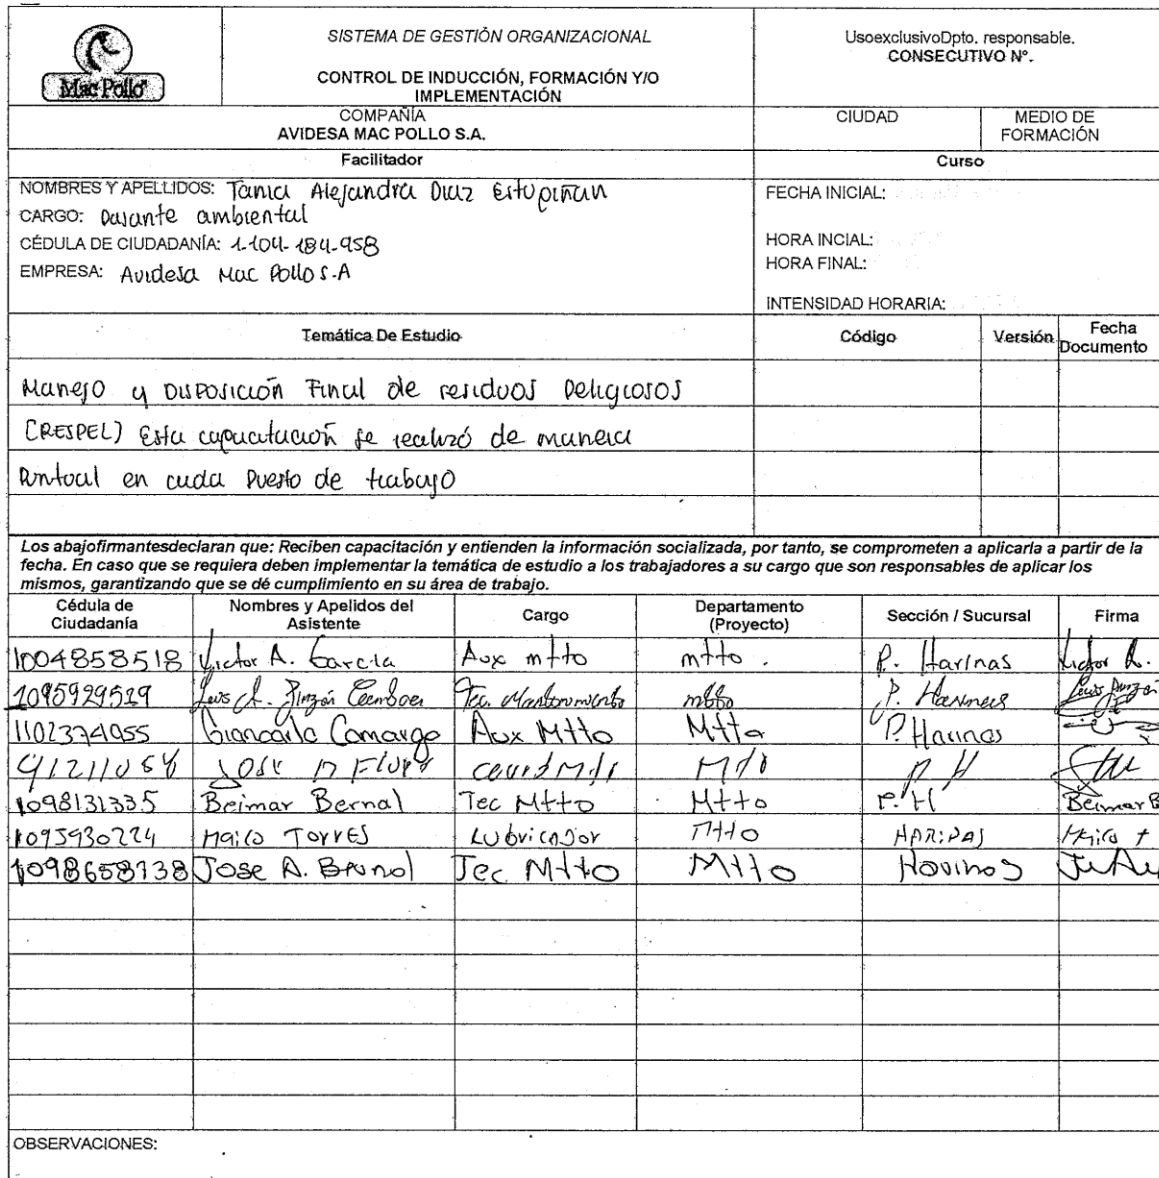 Mac Pollo
SISTEMA DE GESTIÓN ORGANIZACIONAL
CONTROL DE INDUCCIÓN, FORMACIÓN Y/O
IMPLEMENTACIÓN
UsoexclusivoDpto. responsable.
CONSECUTIVO Nº.
COMPAÑÍA
AVIDESA MAC POLLO S.A.
CIUDAD
MEDIO DE
FORMACIÓN
Facilitador
Curso
NOMBRES Y APELLIDOS: Tania Alejandra Diaz Estupiñan
CARGO: Pasante ambiental
CÉDULA DE CIUDADANÍA: 1-104-184-958
EMPRESA: Avidesa Mac Pollo S.A
FECHA INICIAL:
HORA INCIAL:
HORA FINAL:
INTENSIDAD HORARIA:
Temática De Estudio Código Versión Fecha
Documento
Manejo y Disposición Final de residuos Peligrosos
(RESPEL) Esta capacitación se realizó de manera
Puntual en cada Puesto de trabajo
Los abajofirmantesdeclaran que: Reciben capacitación y entienden la información socializada, por tanto, se comprometen a aplicarla a partir de la
fecha. En caso que se requiera deben implementar la temática de estudio a los trabajadores a su cargo que son responsables de aplicar los
mismos, garantizando que se dé cumplimiento en su área de trabajo.
Cédula de
Ciudadanía
Nombres y Apelidos del
Asistente
Cargo
Departamento
(Proyecto)
Sección / Sucursal
Firma
1004858518 Victor A. Garcia Aux mtto mtto. P. Harinas Victor A.
1095929529 Luis A. Pinzón Tec. Mantenimiento mtto P. Harinas Luis Pinzón
1102374955 Giancarlo Camargo Aux Mtto Mtto P. Harinas
91211054 Jose Mtto P H
1098131335 Beimar Bernal Tec Mtto Mtto P.H Beimar B
1095930224 Maico Torres Lubricador Mtto Harinas Maico T
1098658738 Jose A. Tec Mtto Mtto Harinas
OBSERVACIONES: